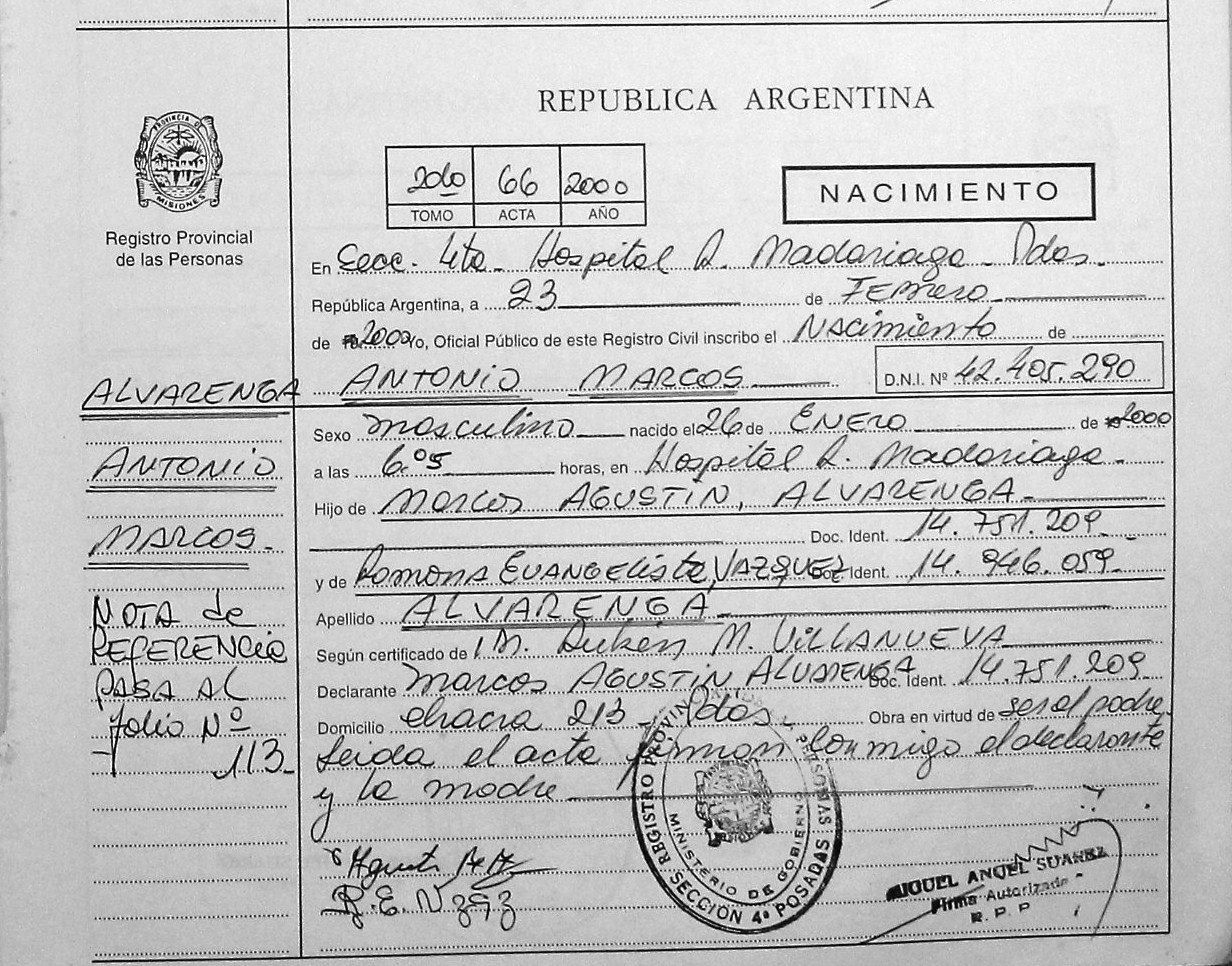 REPUBLICA ARGENTINA
PROVINCIA DE MISIONES
Registro Provincial
de las Personas
2000 66 2000
TOMO ACTA AÑO
NACIMIENTO
En Secc. 4ta. Hospital R. Madariaga - Pdas.
República Argentina, a 23 de Febrero
de 2000 Yo, Oficial Público de este Registro Civil inscribo el Nacimiento de
ANTONIO MARCOS D.N.I. Nº 42.405.290
Sexo masculino nacido el 26 de ENERO de 2000
a las 6.05 horas, en Hospital R. Madariaga -
Hijo de Marcos AGUSTIN, ALVARENGA
Doc. Ident. 14.751.209
y de Ramona EVANGELISTA, VAZQUEZ Doc. Ident. 14.946.059
Apellido ALVARENGA
Según certificado de M. VILLANUEVA
Declarante Marcos AGUSTIN ALVARENGA Doc. Ident. 14.751.209
Domicilio chacra 213 - Pdas. Obra en virtud de ser el padre
Leida el acta firman conmigo el declarante
y la madre
ALVARENGA
ANTONIO
MARCOS.
NOTA de
REFERENCIA
PASA AL
folio Nº
113
R.E.V
REGISTRO PROVINCIAL DE LAS PERSONAS
MINISTERIO DE GOBIERNO
SECCIÓN 4ª POSADAS
MIGUEL ANGEL SUAREZ
Firma Autorizada
R. P. P